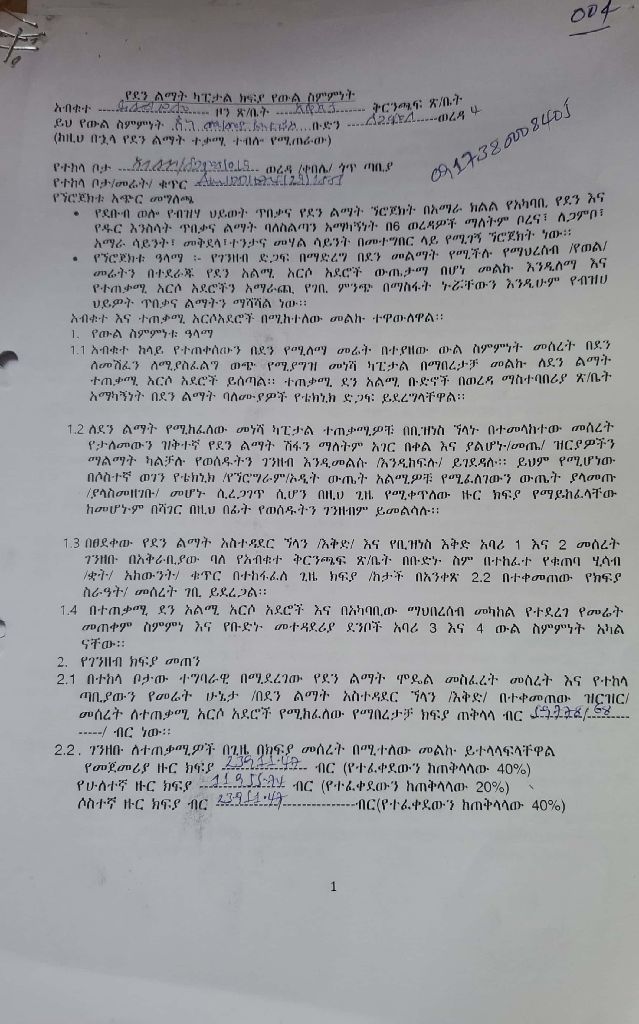 004
የደን ልማት ካፒታል ክፍያ የውል ስምምነት
አብቁተ ዞን ጽ/ቤት ቅርንጫፍ ጽ/ቤት
ይህ የውል ስምምነት ቡድን ወረዳ 4
(ከዚህ በኋላ የደን ልማት ተቃሚ ተብሎ የሚጠራው)
የተከላ ቦታ ወረዳ /ቀበሌ/ ጎጥ ጣቢያ
የተከላ ቦታ/መሬት/ ቁጥር
የኘሮጀክቱ አጭር መግለጫ
• የደቡብ ወሎ የብዝሃ ህይወት ጥበቃና የደን ልማት ኘሮጀክት በአማራ ክልል የአካባቢ የደን እና
የዱር እንስሳት ጥበቃና ልማት ባለስልጣን አማካኝነት በ6 ወረዳዎች ማለትም ቦረና፣ ሊጋምቦ፣
አማራ ሳይንት፣ መቅደላ፣ተንታና መሃል ሳይንት በመተግበር ላይ የሚገኝ ኘሮጀክት ነው፡፡
• የኘሮጀክቱ ዓላማ ፡- የገንዘብ ድጋፍ በማድረግ በደን መልማት የሚችሉ የማህረሰብ /የወል/
መሬትን በተደራጁ የደን አልሚ አርሶ አደሮች ውጤታማ በሆነ መልኩ እንዲለማ እና
የተጠቃሚ አርሶ አደሮችን አማራጪ የገቢ ምንጭ በማስፋት ኑሯቸውን እንዲሁም የብዝሀ
ህይዎት ጥበቃና ልማትን ማሻሻል ነው፡፡
አብቁተ እና ተጠቃሚ አርሶአደሮች በሚከተለው መልኩ ተዋውለዋል፡፡
1. የውል ስምምነቱ ዓላማ
1.1 አብቁተ ከላይ የተጠቀሰውን በደን የሚለማ መሬት በተያዘው ውል ስምምነት መሰረት በደን
ለመሸፈን ለሚያስፈልግ ወጭ የሚያግዝ መነሻ ካፒታል በማበረታቻ መልኩ ለደን ልማት
ተጠቃሚ አርሶ አደሮች ይሰጣል፡፡ ተጠቃሚ ደን አልሚ ቡድኖች በወረዳ ማስተባበሪያ ጽ/ቤት
አማካኝነት በደን ልማት ባለሙያዎች የቴክኒክ ድጋፍ ይደረግላቸዋል፡፡
1.2 ለደን ልማት የሚከፈለው መነሻ ካፒታል ተጠቃሚዎቹ በቢዝነስ ኘላኑ በተመላከተው መሰረት
የታለመውን ዝቅተኛ የደን ልማት ሽፋን ማለትም አገር በቀል እና ያልሆኑ/መጤ/ ዝርያዎችን
ማልማት ካልቻሉ የወሰዱትን ገንዘብ እንዲመልሱ /እንዲከፍሉ/ ይገደዳሉ፡፡ ይህም የሚሆነው
በሶስተኛ ወገን የቴክኒክ /የኘሮግራም/ኦዲት ውጤት አልሚዎቹ የሚፈለገውን ውጤት ያላመጡ
/ያላስመዘገቡ/ መሆኑ ሲረጋገጥ ሲሆን በዚህ ጊዜ የሚቀጥለው ዙር ክፍያ የማይከፈላቸው
ከመሆኑም በሻገር በዚህ በፊት የወሰዱትን ገንዘብም ይመልሳሉ፡፡
1.3 በፀደቀው የደን ልማት አስተዳደር ኘላን /እቅድ/ እና የቢዝነስ እቅድ አባሪ 1 እና 2 መሰረት
ገንዘቡ በአቅራቢያው ባለ የአብቁተ ቅርንጫፍ ጽ/ቤት በቡድኑ ስም በተከፈተ የቁጠባ ሂሳብ
/ቋት/ አካውንት/ ቁጥር በተከፋፈለ ጊዜ ክፍያ /ከታች በአንቀጽ 2.2 በተቀመጠው የክፍያ
ስራዓት/ መሰረት ገቢ ይደረጋል፡፡
1.4 በተጠቃሚ ደን አልሚ አርሶ አደሮች እና በአካባቢው ማህበረሰብ መካከል የተደረገ የመሬት
መጠቀም ስምምነ እና የቡድኑ መተዳደሪያ ደንቦች አባሪ 3 እና 4 ውል ስምምነት አካል
ናቸው፡፡
2. የገንዘብ ክፍያ መጠን
2.1 በተከላ ቦታው ተግባራዊ በሚደረገው የደን ልማት ሞዴል መስፈረት መሰረት እና የተከላ
ጣቢያውን የመሬት ሁኔታ /በደን ልማት አስተዳደር ኘላን /እቅድ/ በተቀመጠው ዝርዝር/
መሰረት ለተጠቃሚ አርሶ አደሮች የሚከፈለው የማበረታቻ ክፍያ ጠቅላላ ብር 59778/68
-----/ ብር ነው፡፡
2.2 . ገንዘቡ ለተጠቃሚዎች በጊዜ በክፍያ መሰረት በሚተለው መልኩ ይተላላፍላቸዋል
የመጀመሪያ ዙር ክፍያ 23911.47 ብር (የተፈቀደውን ከጠቅላላው 40%)
የሁለተኛ ዙር ክፍያ 11955.74 ብር (የተፈቀደውን ከጠቅላላው 20%)
ሶስተኛ ዙር ክፍያ ብር 23911.47 ብር(የተፈቀደውን ከጠቅላላው 40%)
1